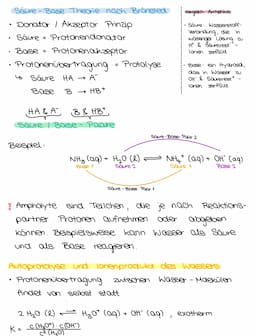 Säure - Base Theorie nach Brönsted
• Donator / Akzeptor Prinzip
• Säure = Protonendonator
• Base = Protonenakzeptor
• Protonenübertragung = Protolyse
↳ Säure HA → A⁻
Base B → HB⁺
HA & A⁻ B & HB⁺
Säure / Base - Paare
Arrhenius
• Säure: Wasserstoff-
Verbindung, die in
wässriger Lösung zu
H⁺ & Säurerest⁻-
Ionen zerfällt
• Base: ein Hydroxid,
das in Wasser zu
OH⁻ &
Ionen zerfällt
Beispiel:
Säure-Base Paar 2
NH₃ (aq) + H₂O (l) ⇌ NH₄⁺ (aq) + OH⁻ (aq)
Base 1 Säure 2 Säure 1 Base 2
Säure - Base Paar 1
! Ampholyte sind Teilchen, die je nach Reaktions-
partner Protonen aufnehmen oder abgeben
können. Beispielsweise kann Wasser als Säure
und als Base reagieren.
Autoprotolyse und Ionenprodukt des Wassers
• Protonenübertragung zwischen Wasser - Molekülen
findet von selbst statt
2 H₂O (l) ⇌ H₃O⁺ (aq) + OH⁻ (aq), exotherm
K = c(H₃O⁺) · c(OH⁻)
c²(H₂O)